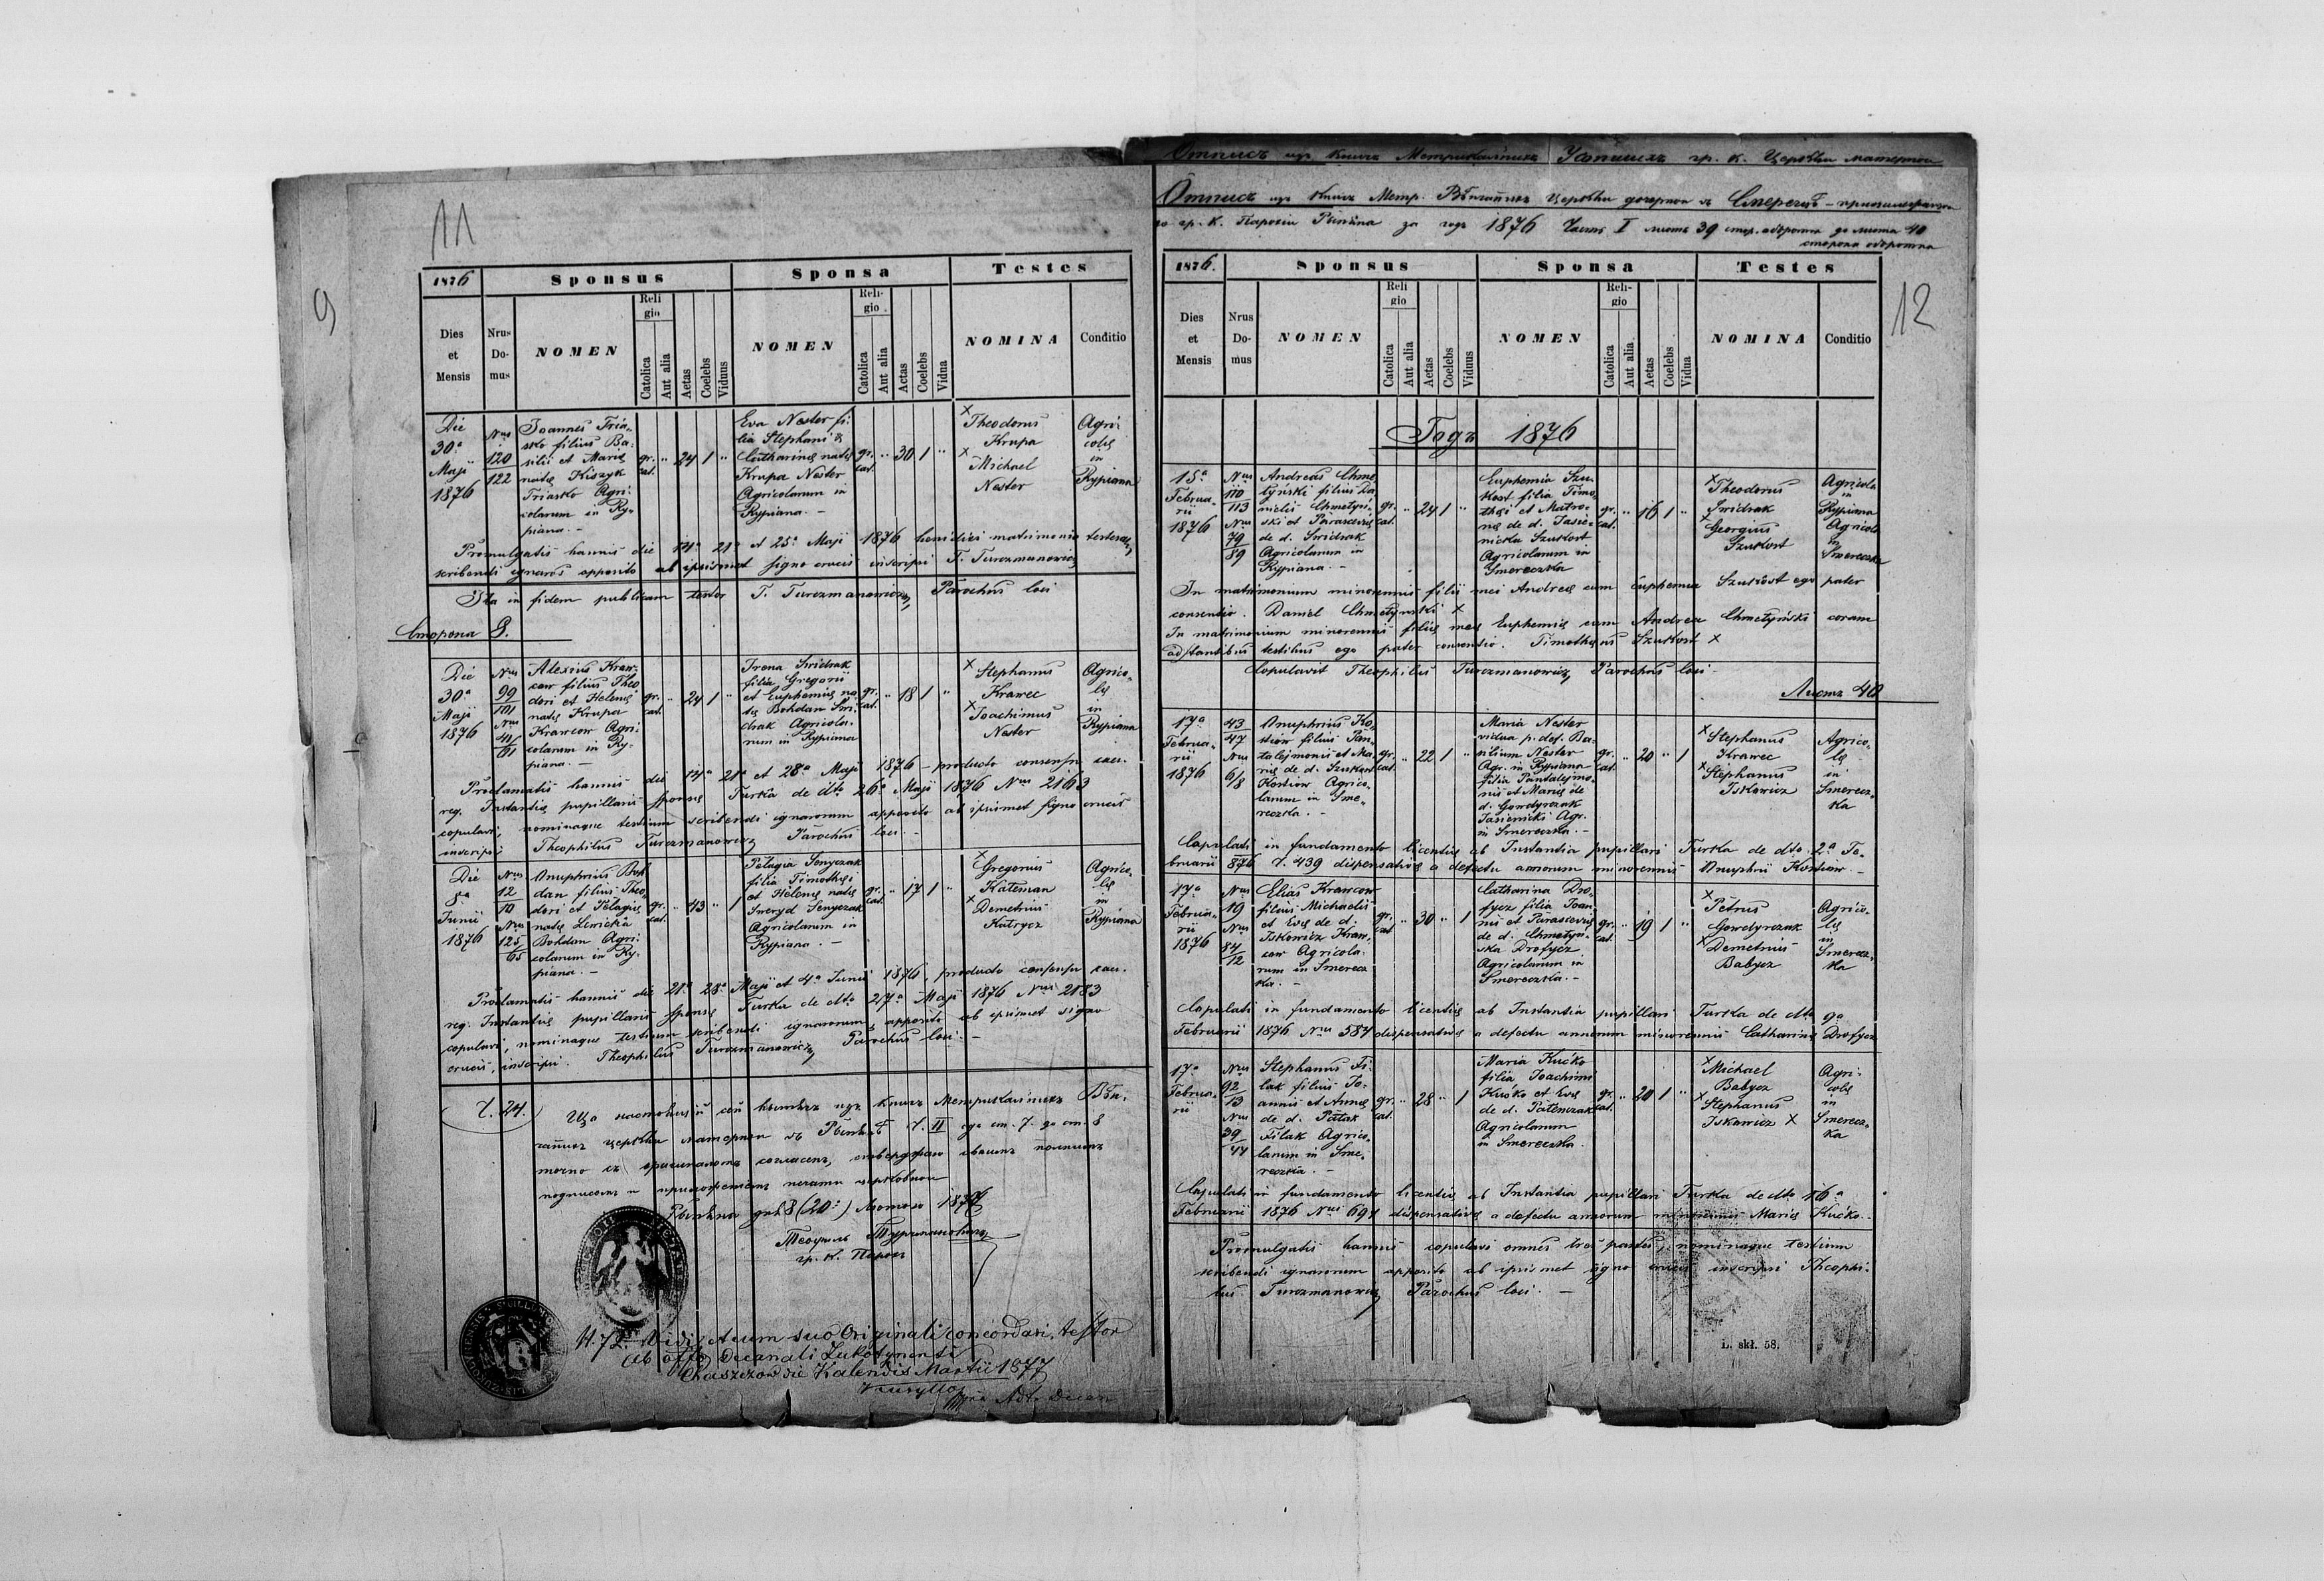 11
9
1876 Sponsus Sponsa Testes
Dies et Mensis Nrus Domus NOMEN Religio Catolica Aut alia Aetas Coelebs Viduus NOMEN Religio Catolica Aut alia Aetas Coelebs Vidua NOMINA Conditio
Die
30ª
Maji
1876
Nus
120
122
Joannes Tria-
sko filius Ba-
silii et Mariæ
natæ Kiszyk
Triasko Agri-
colarum in Ry-
piana. -
gr. cat. " 24 1 "
Eva Nester fi-
lia Stephani &
Catharinæ natæ
Krupa Nester
Agricolarum in
Rypiana. -
gr. cat. " 30 1 "
× Theodorus
Krupa
× Michael
Nester
Agri-
colæ
in
Rypiana
Promulgatis bannis die 14ª 21ª et 25ª Maji 1876 benedixi matrimonio testes
scribendi ignaros apposito ab ipsismet signo crucis inscripsi T. Turczmanowicz
Ita in fidem publicam testor T. Turczmanowicz, Parochus loci
Сторона 8.
Die
30ª
Maji
1876
Nus
99
101
Nus
41
61
Alexius Kraw-
cow filius Theo
dori et Helenæ
natæ Krupa
Krawcow Agri-
colarum in Ry-
piana. -
gr. cat. " 24 1 "
Irena Swidrak
filia Gregorii
et Euphemiæ na
tæ Bohdan Swi-
drak Agricola-
rum in Rypiana
gr. cat. " 18 1 "
× Stephanus
Krawec
× Joachimus
Nester
Agrico-
læ
in
Rypiana
Proclamatis bannis die 14ª 21ª et 28ª Maji 1876 - producto consensu caes.
reg. Instantiæ pupillaris sponsæ Turka de dto 26ª Maji 1876 Nus 2163
copulavi, nominaque testium scribendi ignarorum apposito ab ipsismet signo crucis
inscripsi Theophilus Turczmanowicz Parochus loci. -
Die
8ª
Junii
1876
Nus
12
10
Nus
125
65
Onuphrius Boh
dan filius Theo
dori et Pelagiæ
natæ Lewicka
Bohdan Agri-
colarum in Ry-
piana. -
gr. cat. " 43 " 1
Pelagia Senyczak
filia Timothei
et Helenæ natæ
Sweryd Senyczak
Agricolarum in
Rypiana. -
gr. cat. " 17 1 "
× Gregorius
Kateman
× Demetrius
Katrycz
Agrico-
læ
in
Rypiana
Proclamatis bannis die 21ª 28ª Maji et 4ª Junii 1876, producto consensu caes.
reg. Instantiæ pupillaris sponsæ Turka de dto 27ª Maji 1876 Nus 2183
copulavi, nominaque testium scribendi ignarorum, apposito ab ipsismet signo
crucis, inscripsi. Theophilus Turczmanowicz, Parochus loci. -
Ч. 24.
Що настоящій сей выписъ изъ книгъ Метрикальныхъ Вѣн-
чаныхъ церкви матерной въ Рѣпянѣ Ч. II одъ ст. 7. до ст. 8
точно съ оригиналомъ согласенъ, стверджаю своимъ полнымъ
подписомъ и приложеніемъ печати церковной
Рѣпяна дня 8 (20.) Лютого 1877
Теофилъ Турчмановичъ
гр. к. Парох
N. 72. Vidi et cum suo Originali concordari, testor
Ab offo Decanali Zukotynensi
Chaszczow die Kalendis Martii 1877
Adtr Decan
Отписъ изъ книгъ Метрикальныхъ Усопшихъ гр. к. Церкви матерной
Отписъ изъ книгъ Метр. Вѣнчаныхъ Церкви дочерной въ Смеречцѣ - приналежачой
до гр. к. Парохіи Рѣпяна за годъ 1876 Часть I листъ 39 стор. обротна до листа 40
сторона обротна
12
1876. Sponsus Sponsa Testes
Dies et Mensis Nrus Domus NOMEN Religio Catolica Aut alia Aetas Coelebs Viduus NOMEN Religio Catolica Aut alia Aetas Coelebs Vidua NOMINA Conditio
Годъ 1876
15ª
Februa-
rii
1876
Nus
110
113
Nus
79
89
Andreas Chme
tyński filius Da
nielis Chmetyń-
ski et Parascevæ
de d. Swidrak
Agricolarum in
Rypiana. -
gr. cat. " 24 1 "
Euphemia Szu-
kost filia Timo-
thei et Matro-
næ de d. Jasie-
nicka Szukost
Agricolarum in
Smereczka
gr. cat. " 16 1 "
× Theodorus
Swidrak
× Georgius
Szukost
Agricola
in
Rypiana
Agricola
in
Smereczka
In matrimonium minorennis filii mei Andreæ cum Euphemia Szukost ego pater
consentio. Daniel Chmetynski ×
In matrimonium minorennis filiæ meæ Euphemiæ cum Andrea Chmetyński coram
adstantibus testibus ego pater consentio. Timotheus Szukost ×
Copulavit Theophilus Turczmanowicz, Parochus loci
Листъ 40
17ª
Februa-
rii
1876
43
47
Nus
6/8
Onuphrius Ko-
stiow filius Pan-
talejmonis et Ma-
riæ de d. Szukost
Kostiow Agrico-
larum in Sme-
reczka. -
gr. cat. " 22 1 "
Maria Nester
vidua p. def. Ba-
silium Nester
Agr. in Rypiana
filia Pantalejmo-
nis et Mariæ de
d. Gowdyrczak
Jasienicki Agr.
in Smereczka. -
gr. cat. " 20 " 1
× Stephanus
Krawec
× Stephanus
Iskowicz
Agrico-
læ
in
Smerecz-
ka
Copulati in fundamento licentiæ ab Instantia pupillari Turka de dto 2ª Fe-
bruarii 876 Ч. 439 dispensativæ a defectu annorum minorennis Onuphrii Kostiow. -
17ª
Februa-
rii
1876
Nus
19
Nus
84
12
Elias Krawcow
filius Michaelis
et Evæ de d.
Iskowicz Kraw-
cow Agricola-
rum in Smerecz
ka. -
gr. cat. " 30 " 1
Catharina Dro-
fycz filia Joan-
nis et Parascevæ
de d. Chmetyń-
ska Drofycz
Agricolarum in
Smereczka. -
gr. cat. " 19 1 "
× Petrus
Gowdyrczak
× Demetrius
Babycz
Agrico-
læ
in
Smerecz-
ka
Copulati in fundamento licentiæ ab Instantia pupillari Turka de dto 9ª
Februarii 1876 Nus 584 dispensativæ a defectu annorum minorennis Catharinæ Drofycz
17ª
Februa-
rii
Nus
92
13
Nus
39
44
Stephanus Fi-
lak filius Jo-
annis et Annæ
de d. Patak
Filak Agrico-
larum in Sme-
reczka. -
gr. cat. " 28 " 1
Maria Kućko
filia Joachimi
Kućko et Evæ
de d. Patenczak
Agricolarum
in Smereczka.
gr. cat. " 20 1 "
× Michael
Babycz
× Stephanus
Iskowicz ×
Agri-
colæ
in
Smerecz-
ka
Copulati in fundamento licentiæ ab Instantia pupillari Turka de dto 16ª
Februarii 1876 Nus 694 dispensativæ a defectu annorum minorennis Mariæ Kućko. -
Promulgatis bannis copulavi omnes tres partes, nominaque testium
scribendi ignarorum apposito ab ipsismet signo crucis inscripsi Theophi-
lus Turczmanowicz, Parochus loci. -
D. skł. 58.